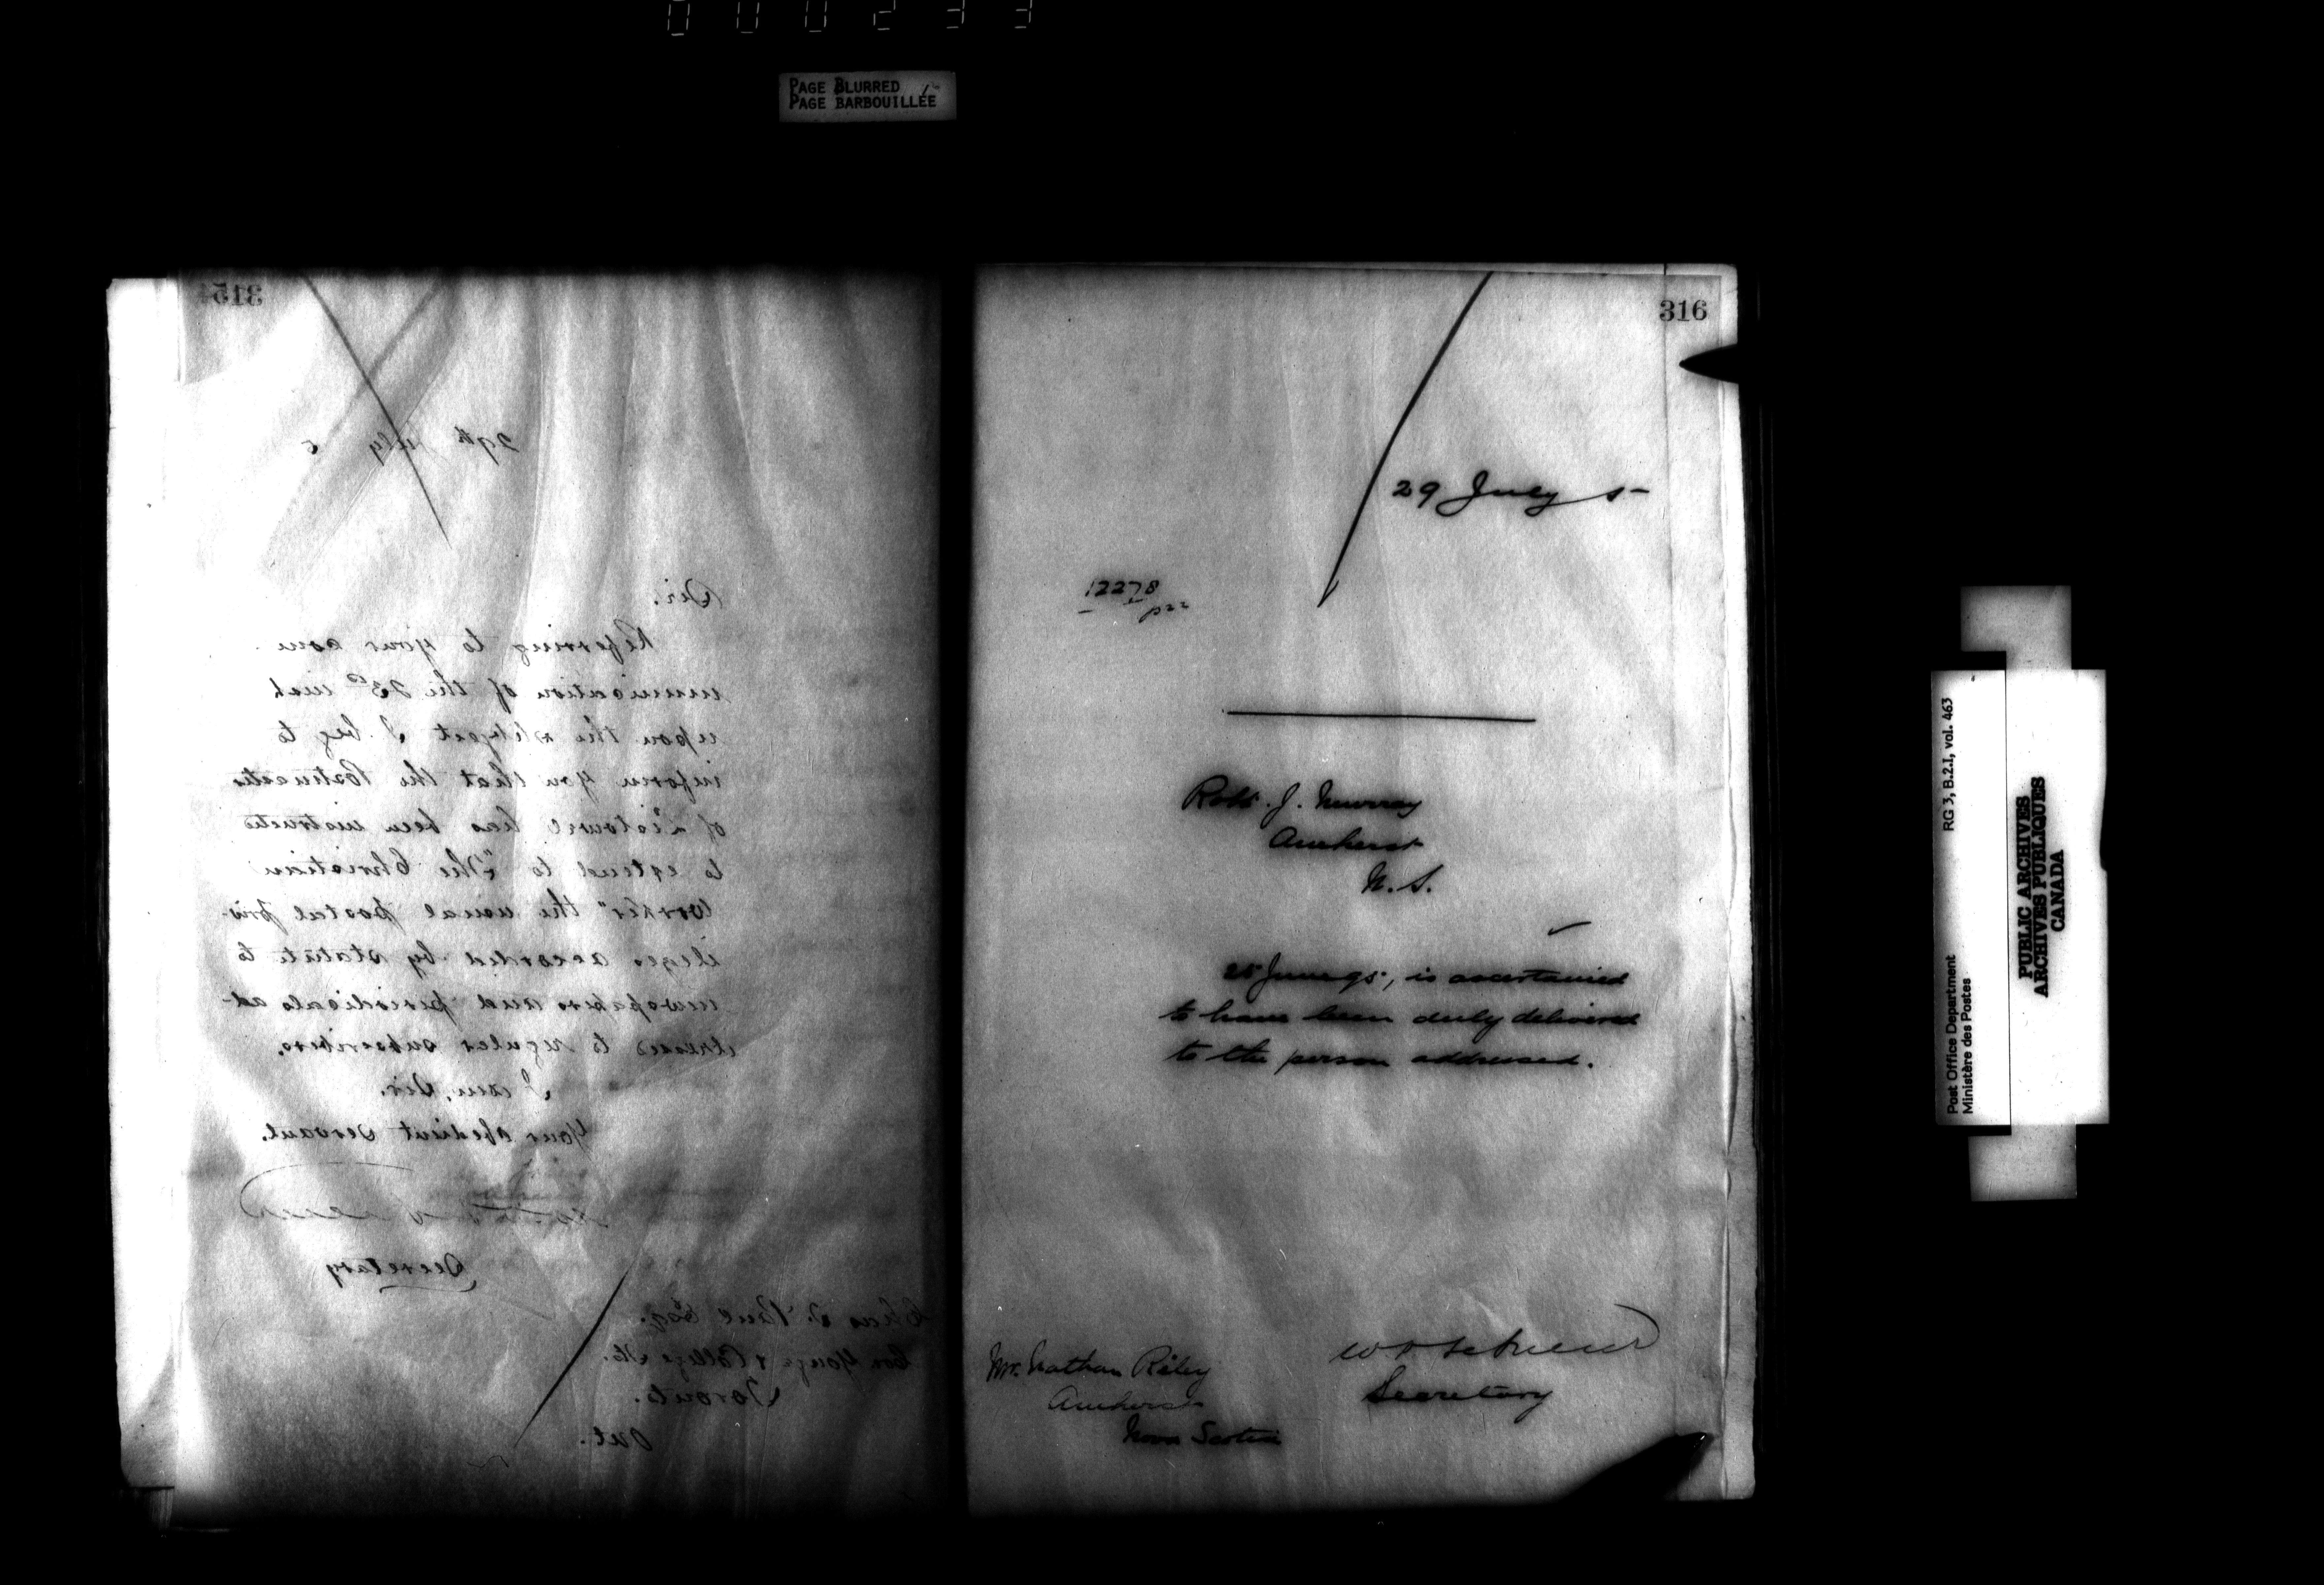 000233
PAGE BLURRED
PAGE BARBOUILLÉE
315
29th July 5
Sir.
Referring to your com
munication of the 23rd inst
upon the subject I beg to
inform you that the Postmaster
of Listowel has been instructed
to extend to "The Christian
Worker" the usual postal priv-
ileges accorded by statute to
newspapers and periodicals ad-
dressed to regular subscribers.
I am, Sir.
Your obedient servant.
Secretary
Esq.
Cor Yonge & College Sts.
Toronto.
Ont.
316
29 July 5
12278
Robt. J. Murray
Amherst
N. S.
25 June 95, is ascertained
to have been duly delivered
to the person addressed.
Secretary
Mr. Nathan Riley
Amherst
Nova Scotia
Post Office Department RG 3, B.2.I, vol. 463
Ministère des Postes
PUBLIC ARCHIVES
ARCHIVES PUBLIQUES
CANADA